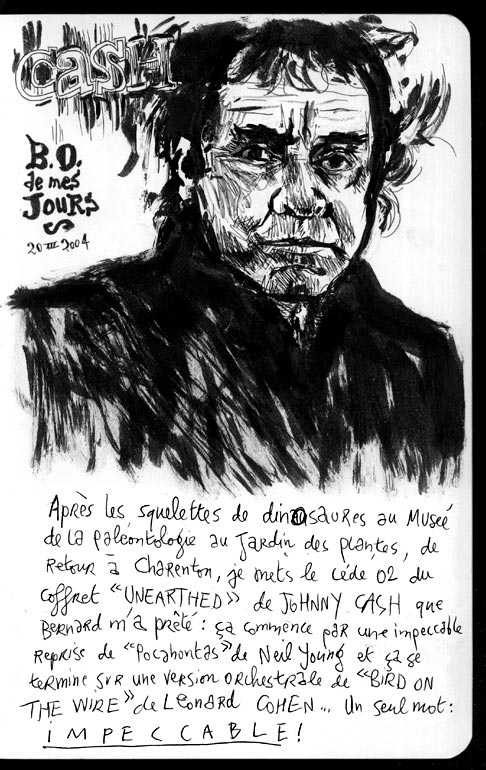 CASH
B.O.
de mes
JOURS
20 III 2004
Après les squelettes de dinosaures au Musée
de la paléontologie au Jardin des plantes, de
retour à Charenton, je mets le cédé 02 du
coffret "UNEARTHED" de JOHNNY CASH que
Bernard m'a prêté : ça commence par une impeccable
reprise de "Pocahontas" de Neil Young et ça se
termine sur une version orchestrale de "BIRD ON
THE WIRE" de Leonard COHEN... Un seul mot :
IMPECCABLE !